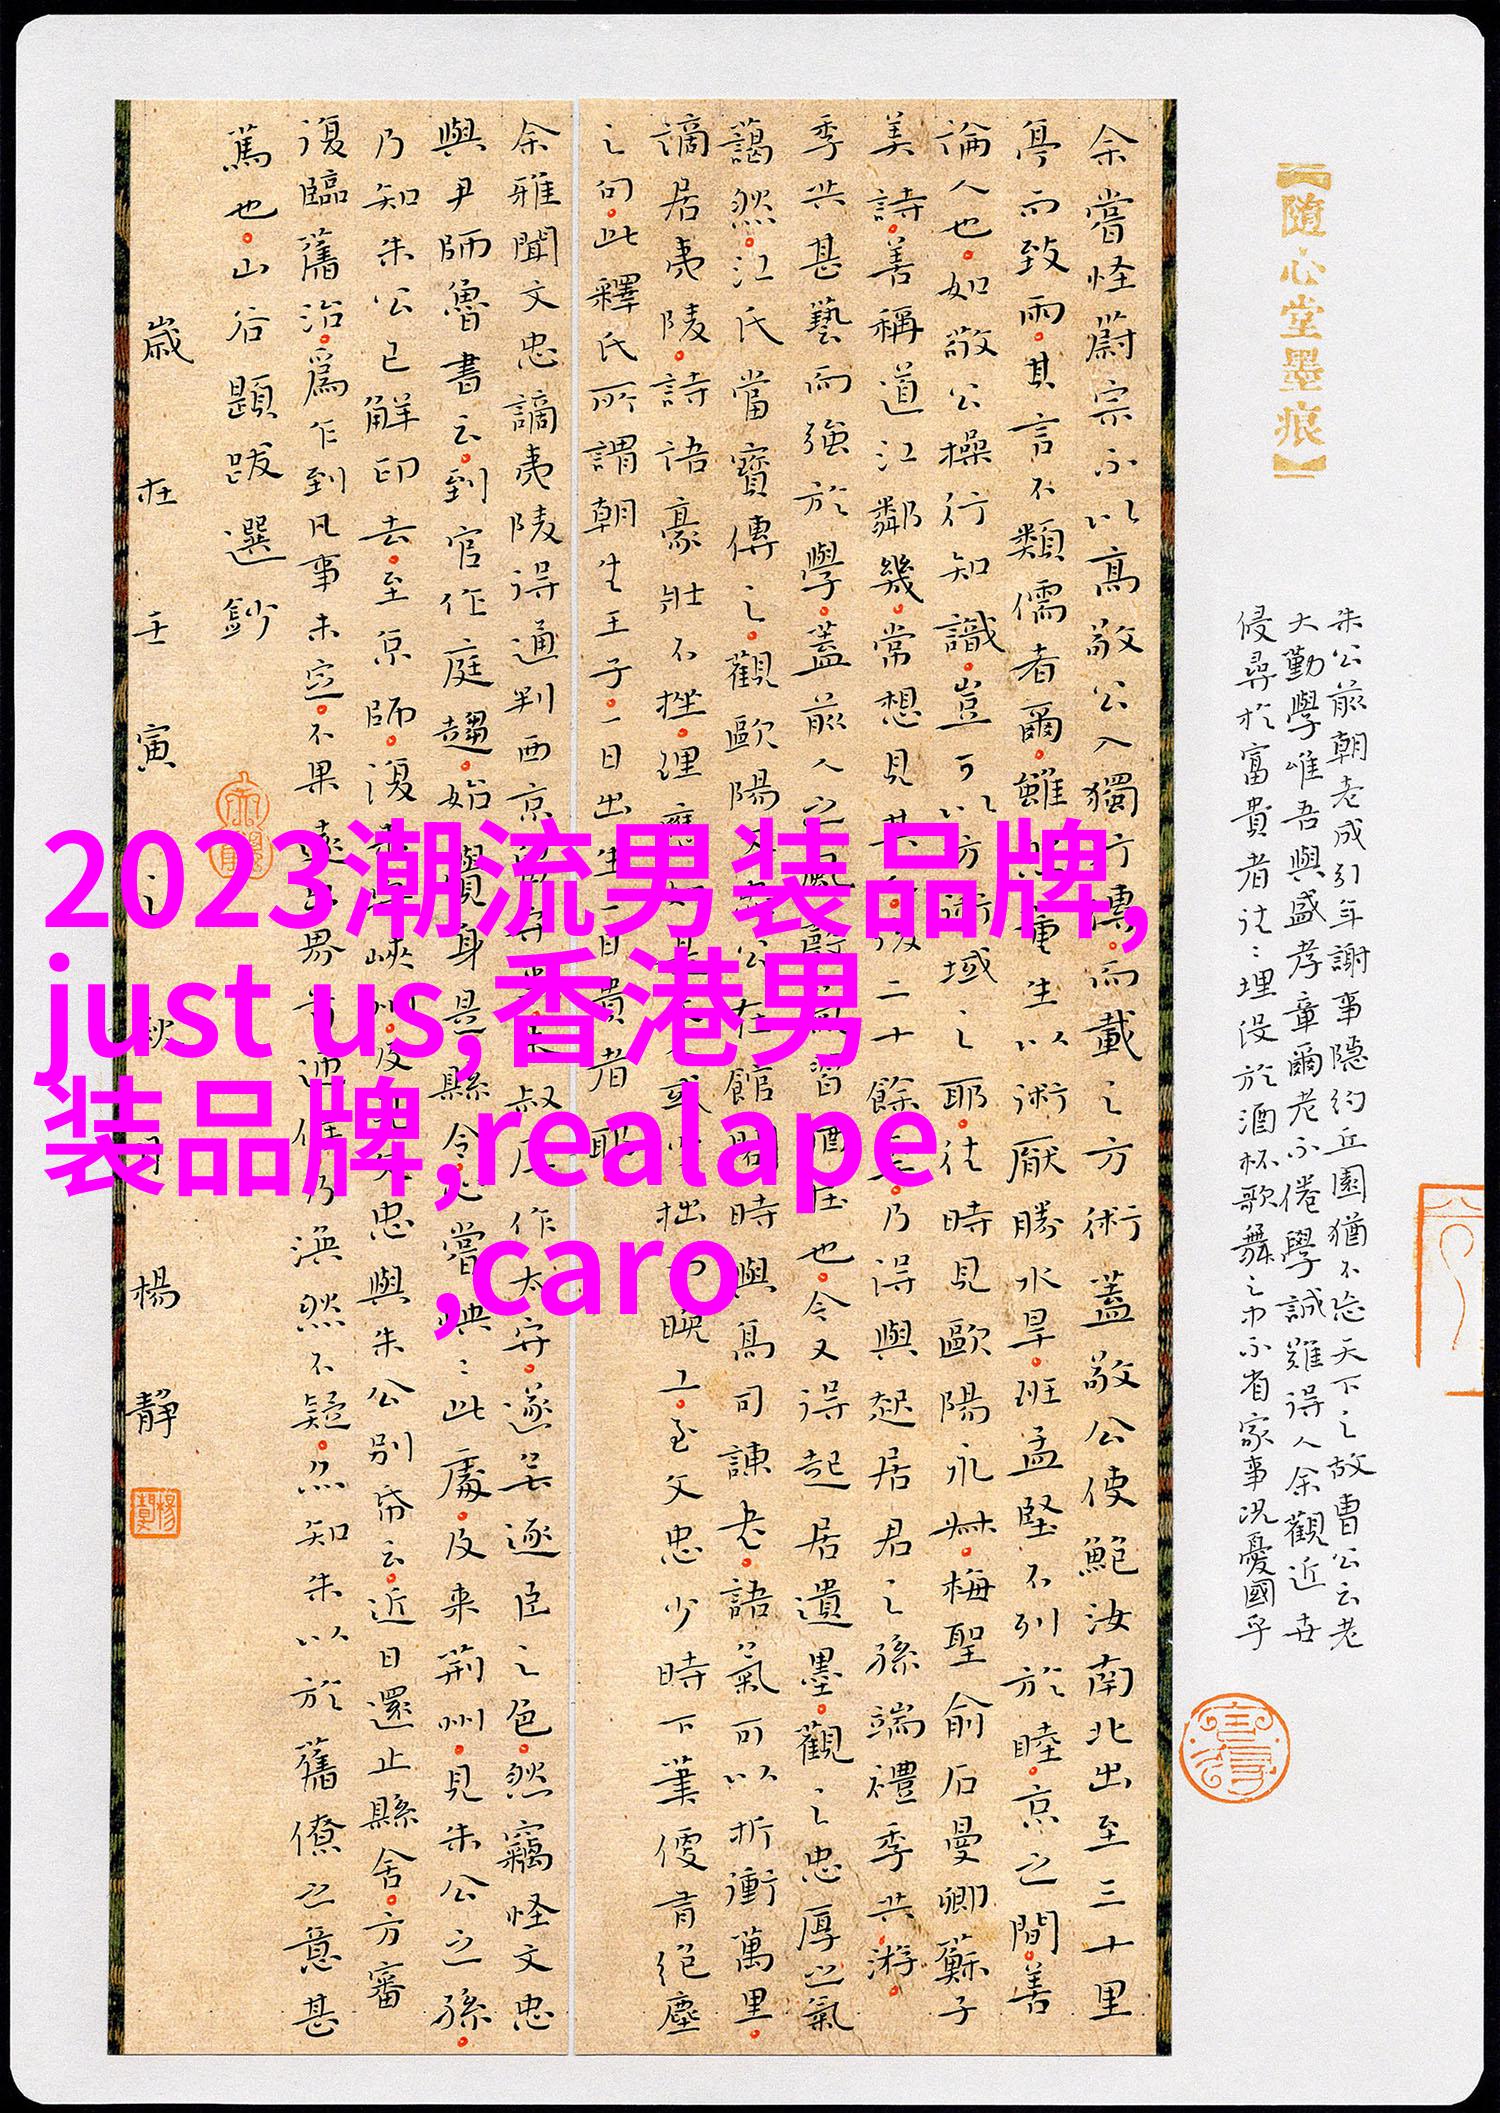 【随心堂墨痕】
朱公前朝老成引年謝事隱約丘園猶不忘天下之故曹公云老
大勤學唯吾與盛孝章爾老不倦學誠難得人余觀近世
侵尋於富貴者往往埋没於酒杯歌舞之中不省家事况憂國乎
余嘗怪蔚宗不以高敬公入獨行傳而載之方術蓋敬公使鮑汝南北出至三十里
亭而致雨其言不類儒者爾雖 生以術厭勝水旱班孟堅不列於睦京之間善
論人也如敬公操行知識豈可以方術域之耶往時見歐陽永叔梅聖俞石曼卿蘇子
美詩善稱道江鄰幾常想見其 二十餘 乃得與起居君之孫端禮季共游
季共甚藝而強於學蓋前人之風 也今又得起居遺墨觀之忠厚之氣
藹然江氏當寶傳之觀歐陽文 公在館閣時與高司諫書語氣可以折衝萬里
謫居夷陵詩語豪壯不挫理應 或少拙而晚工至文忠少時下筆便有絕塵
之句此釋氏所謂朝生王子一日出生一日貴者耶
余雅聞文忠謫夷陵得通判西京 叔庠作太守遂 逐臣之色然竊怪文忠
與尹師魯書云到官作庭趨始覺身是縣令 嘗怏怏此處及来荊州見朱公之孫
乃知朱公已解印去至京師復 峽州及 忠與朱公別帋云近日還止縣舍方審
復臨舊治為乍到凡事未定不果遠出界首迎 乃渙然不疑亦知朱以於舊僚之意甚
篤也山谷題跋選鈔
歲在壬寅之秋月楊靜
2023潮流男装品牌,
just us,香港男
装品牌,realape
,caro